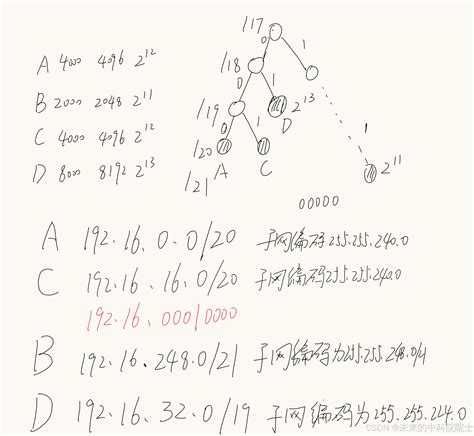 A 4000 4096 2^12
B 2000 2048 2^11
C 4000 4096 2^12
D 8000 8192 2^13
/17
0
/18
0 1
/19 D 2^13
0 1 1
/20 A C 2^11
/21
00000
A 192.16.0.0/20 子网编码255.255.240.0
C 192.16.16.0/20 子网编码255.255.240.0
192.16.00010000
B 192.16.248.0/21 子网编码为255.255.248.0/21
D 192.16.32.0/19 子网编码为255.255.224.0
CSDN @未来的中科院院士